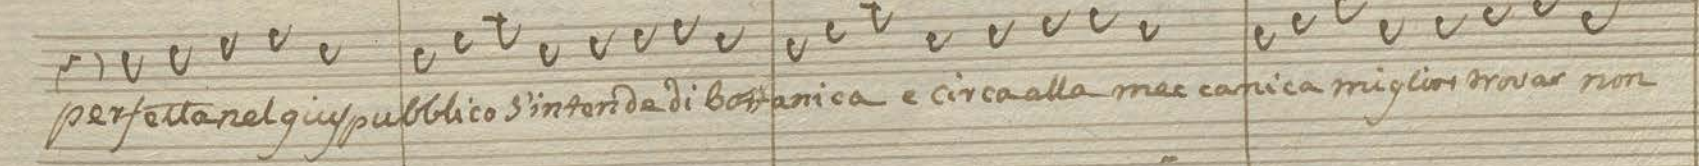 perfetta nel gius pubblico s'intende di bottanica e circa alla meccanica miglior trovar non